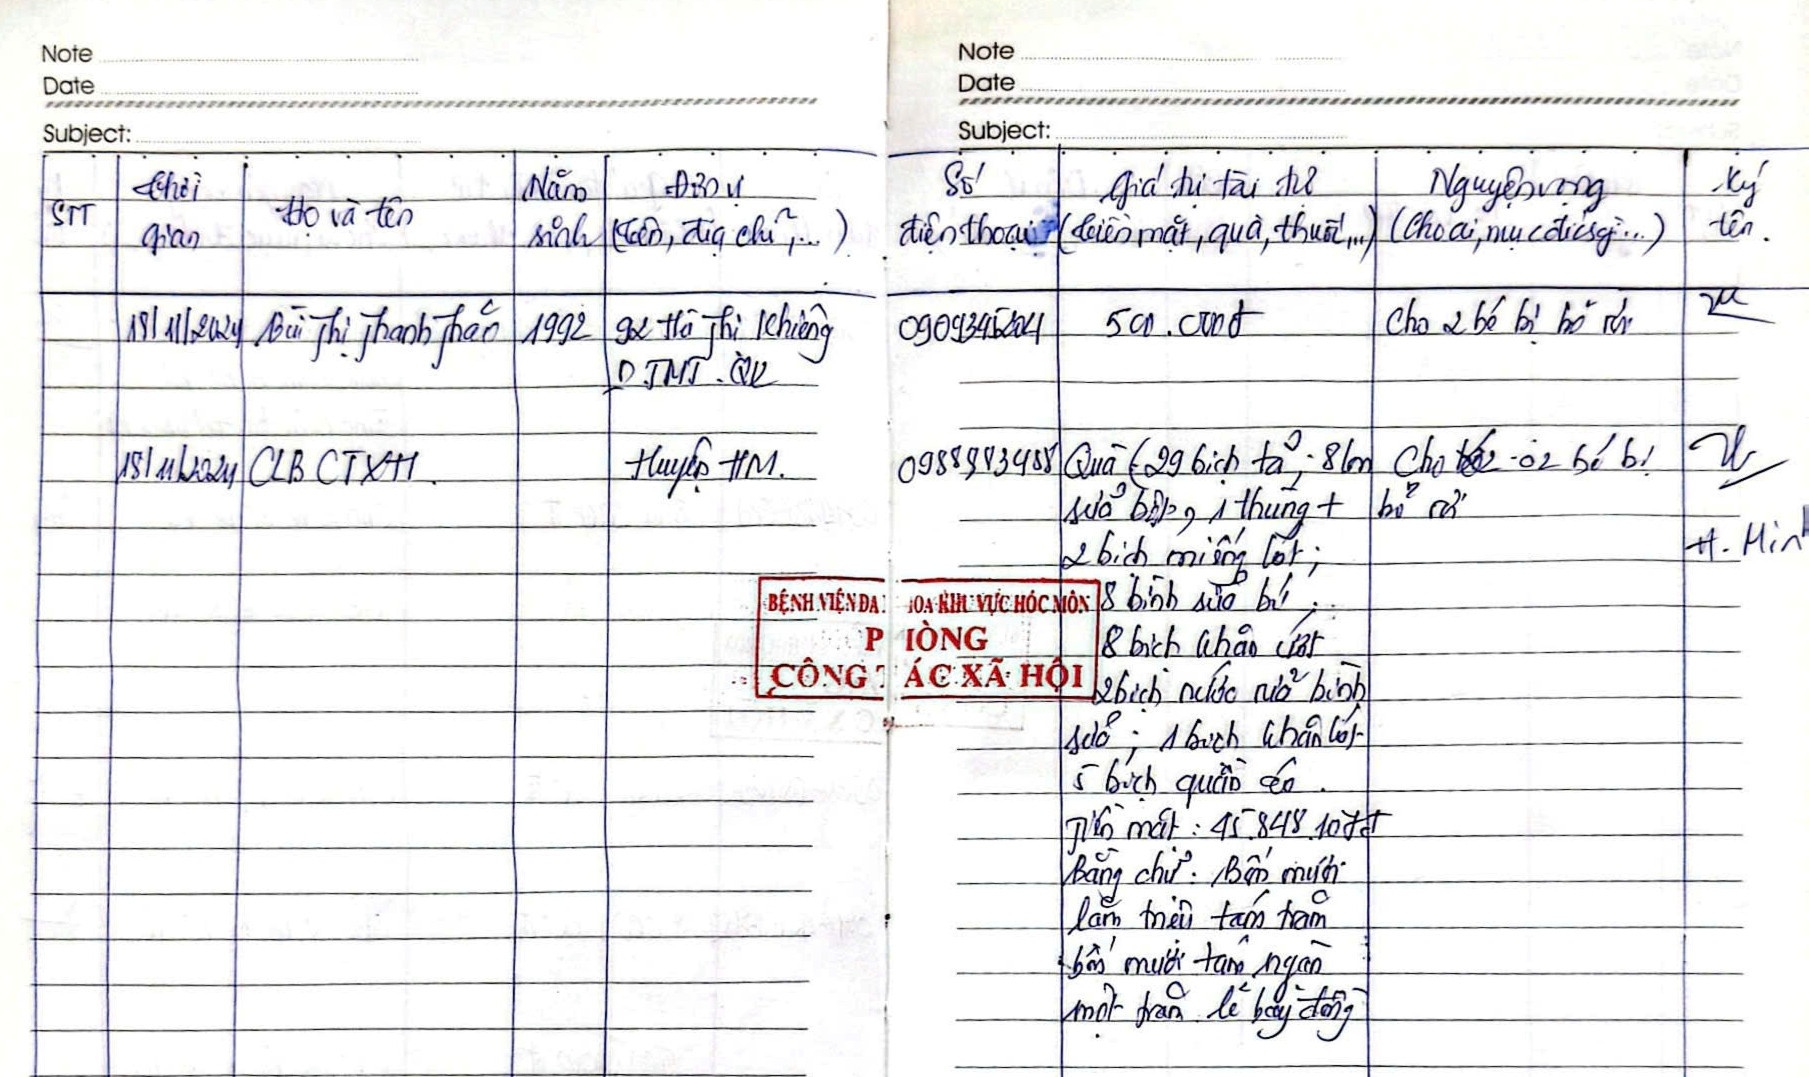 Note
Date
Subject:
STT
Thời gian
Họ và tên
Năm sinh
Đơn vị
(tên, địa chỉ,...)
18/11/2024 Bùi Thị Thanh Thảo 1992 92 Hồ Thị Khiêng
TMT.
18/11/2024 CLB CTXH. Huyện HM.
Note
Date
Subject:
Số điện thoại
Giá trị tài trợ
(tiền mặt, quà, thuốc,...)
Nguyện vọng
(Cho ai, mục đích gì...)
Ký tên.
cho 2 bé bị bỏ rơi
Quà (29 bịch tã; 8 lon Cho 02 bé bị
sữa bột, 1 thùng + bỏ rơi
2 bịch miếng lót; H. Minh
8 bình sữa bú;
8 bịch khăn ướt
2 bịch nước rửa bình
sữa; 1 bịch khăn lót
5 bịch quần áo.
Tiền mặt: 45.848.107đ
Bằng chữ: Bốn mươi
lăm triệu tám trăm
bốn mươi tám ngàn
một trăm lẻ bảy đồng
BỆNH VIỆN ĐA HOA KHU VỰC HÓC MÔN
PHÒNG
CÔNG TÁC XÃ HỘI